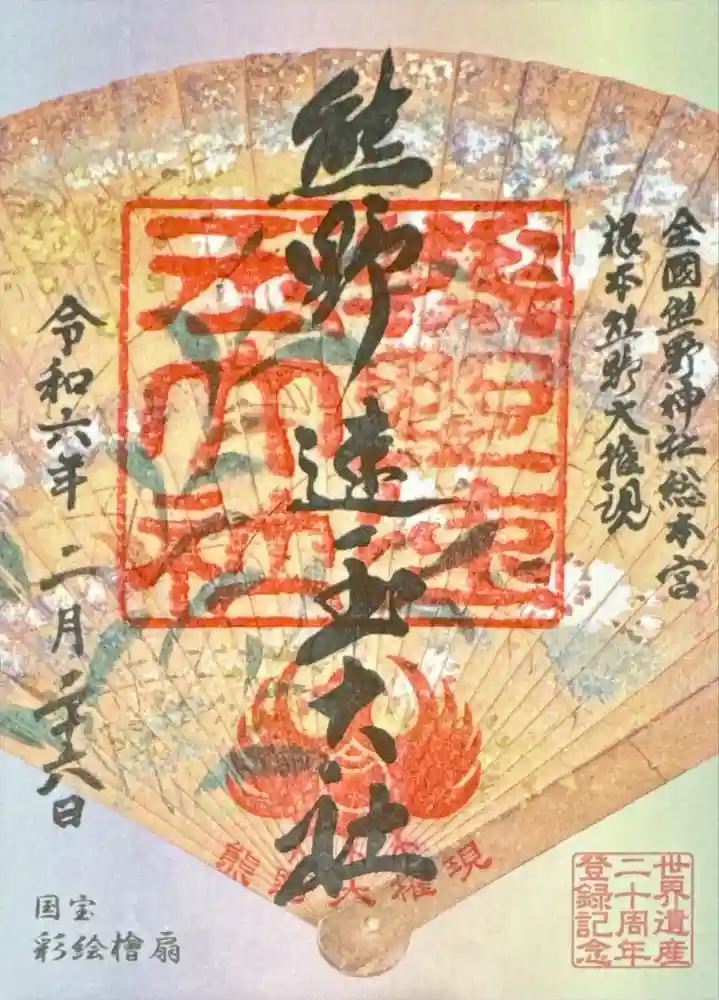 全國熊野神社総本宮
根本熊野大権現
熊野速玉大社
熊野速
玉大社
熊野大権現
令和六年 二月二十八日
国宝
彩絵檜扇
世界遺産
二十周年
登録記念